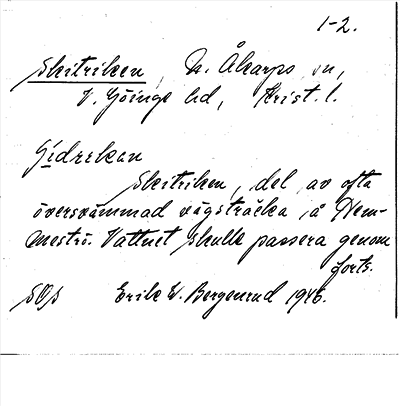 1-2.
Skitriken, N. Åkarps sn,
V. Göinge hd, Krist. l.
Skitriken, del av ofta
översvämmad vägsträcka å Hem-
meströ. Vattnet skulle passera genom
forts.
SOS Erik W. Bergenrud 1946.